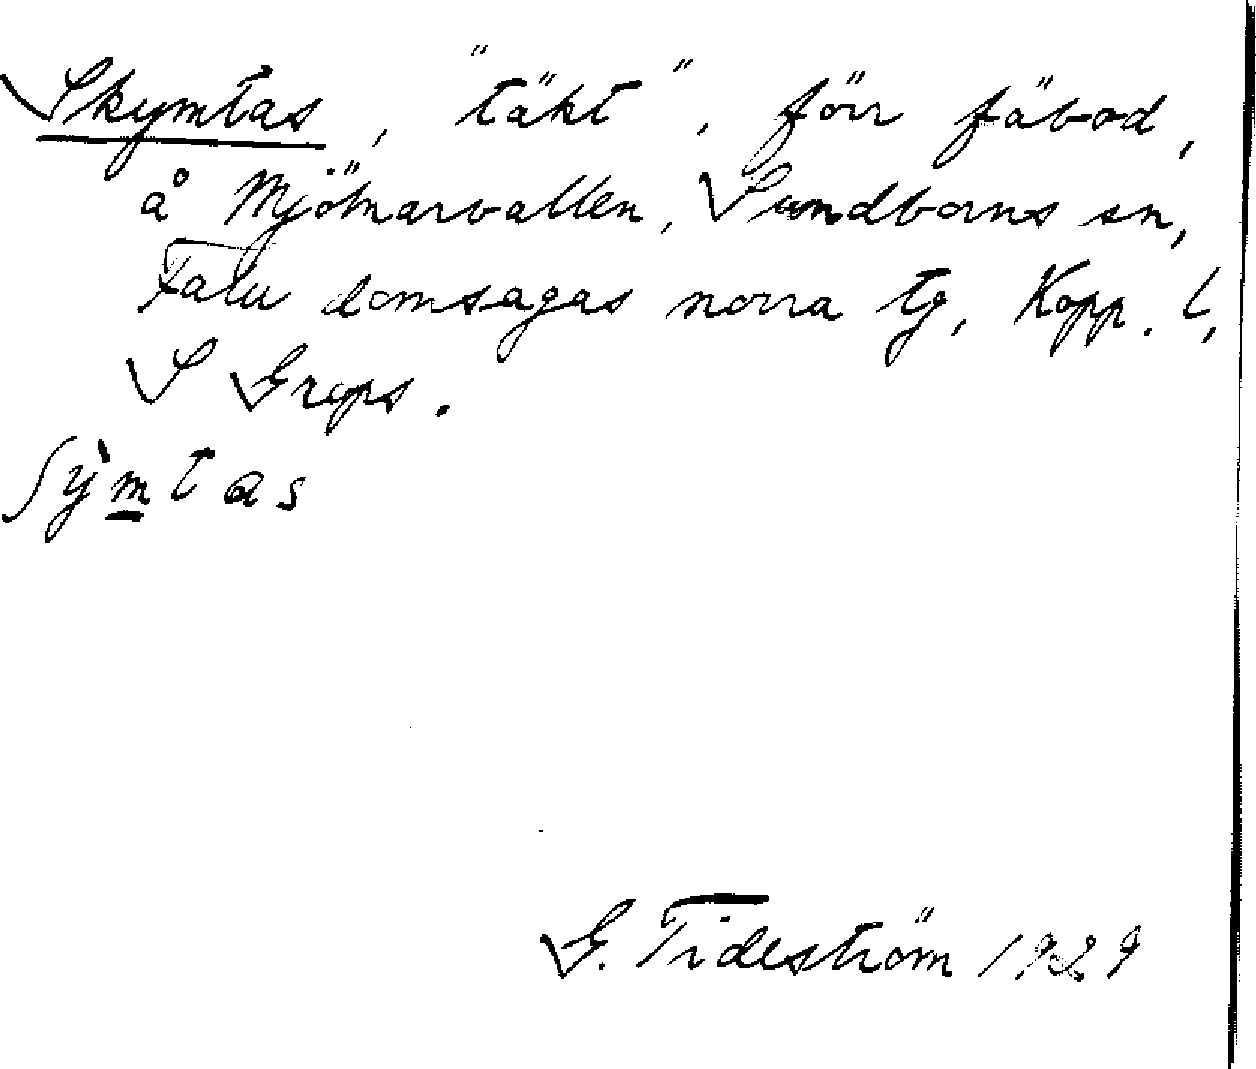 Skymtas, "täkt", förr fäbod,
å Mjölnarvallen, Sundborns sn,
Falu domsagas norra tg, Kopp. l,
S Gryps.
ʃỳm̲tas
G. Tideström 1929